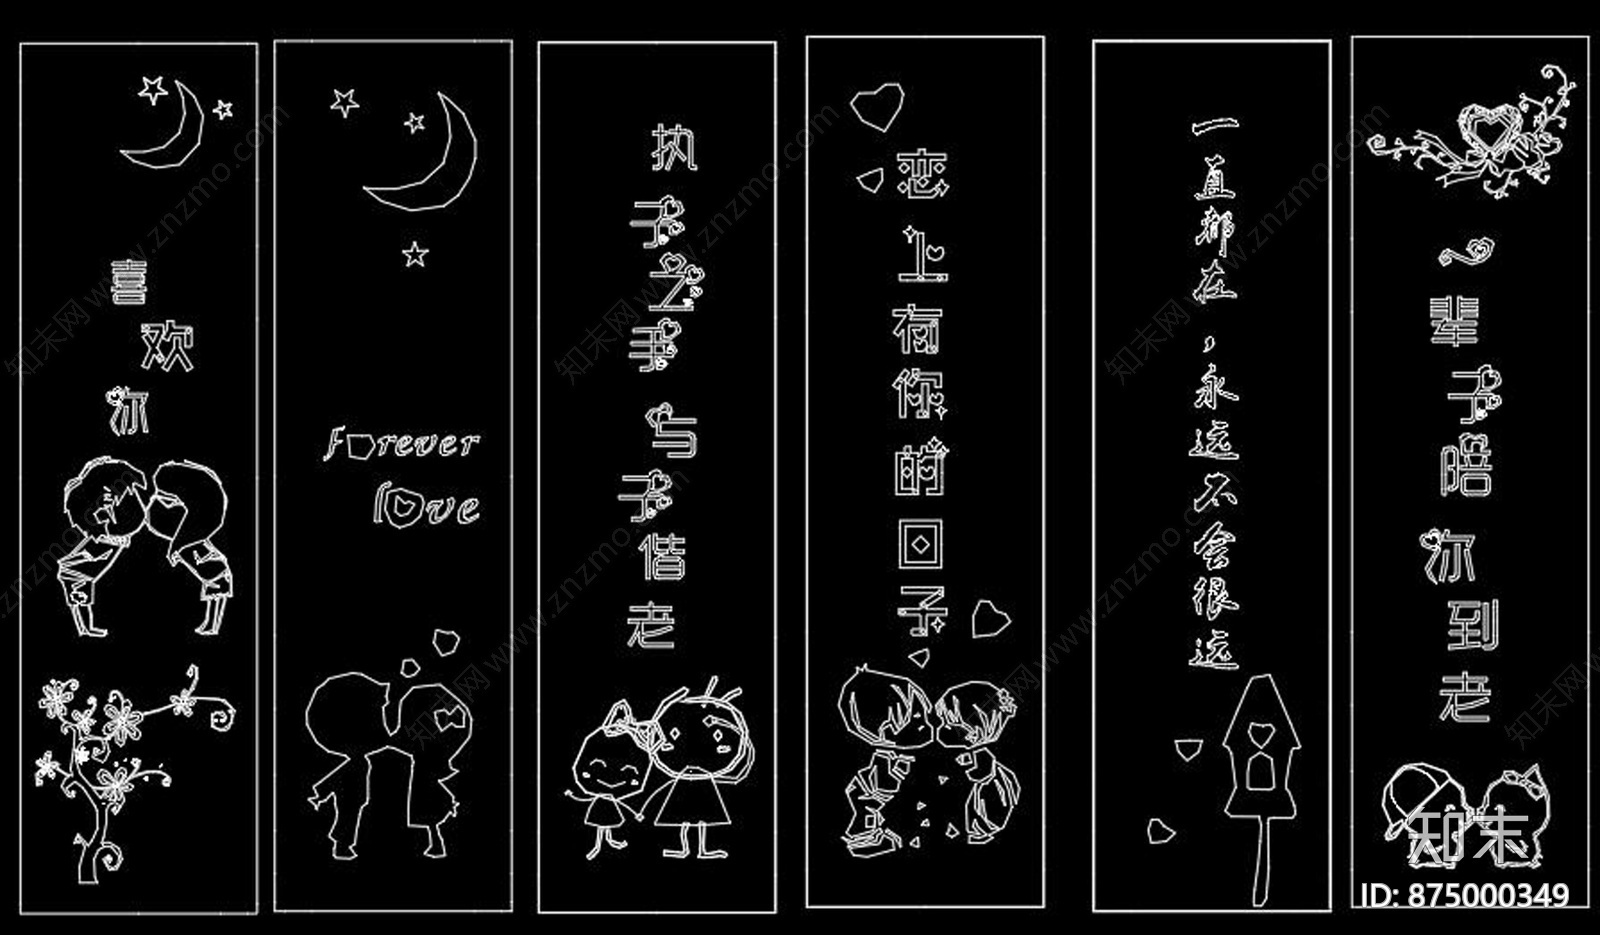 喜欢你
Forever
love
执子之手 与子偕老
恋上有你的日子
一直都在，永远不会很远
一辈子陪你到老
知末
ID: 875000349
知末网www.znzmo.com